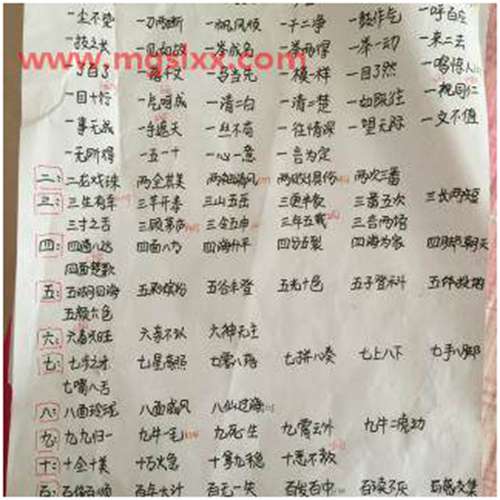 一尘不染 一刀两断 一帆风顺 一干二净 一鼓作气 一呼百应
一技之长 一见如故 一举成名 一举两得 一举一动 一来二去
www.mgslxx.com
一了百了 一落千丈 一马当先 一模一样 一目了然 一鸣惊人
一目十行 一气呵成 一清二白 一清二楚 一如既往 一视同仁
一事无成 一手遮天 一丝不苟 一往情深 一望无际 一文不值
一无所得 一五一十 一心一意 一言为定
二: 二龙戏珠 两全其美 两袖清风 两败俱伤 两次三番
三: 三生有幸 三羊开泰 三山五岳 三更半夜 三番五次 三长两短
三寸之舌 三顾茅庐 三令五申 三年五载 三言两语
四: 四通八达 四面八方 四海升平 四分五裂 四海为家 四脚朝天
四面楚歌
五: 五湖四海 五彩缤纷 五谷丰登 五光十色 五子登科 五体投地
五颜六色
六: 六畜兴旺 六亲不认 六神无主
七: 七步之才 七星高照 七零八落 七拼八凑 七上八下 七手八脚
七嘴八舌
八: 八面玲珑 八面威风 八仙过海
九: 九九归一 九牛一毛 九死一生 九霄云外 九牛二虎功
十: 十全十美 十万火急 十拿九稳 十恶不赦
百: 百依百顺 百年大计 百无一失 百发百中 百读不厌 百废俱兴